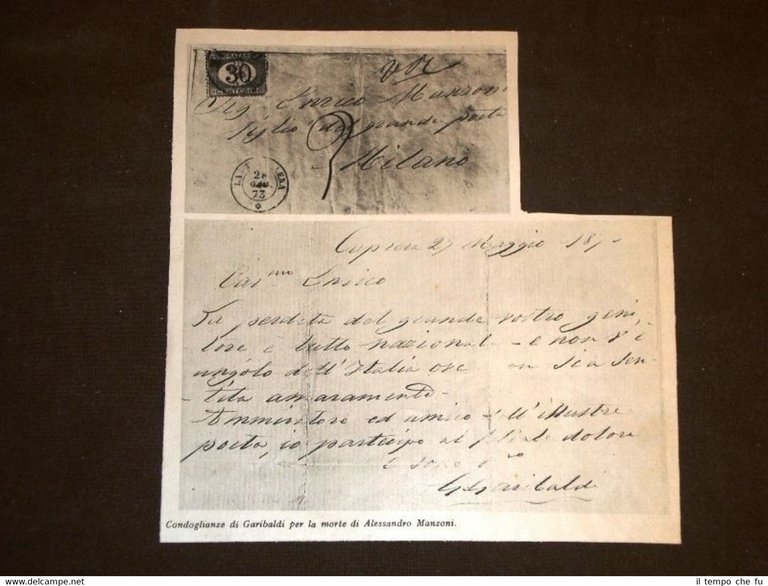 30
Sig Enrico Manzoni
figlio del grande poeta
Milano
28
73
Caprera 27 Maggio 187
Car mo Enrico
La perdita del grande vostro geni
tore è lutto nazionale - e non v'è
angolo dell'Italia ove non sia sen
tita amaramente -
Ammiratore ed amico dell'illustre
poeta, io partecipo al filiale dolore
e sono Vro
G Garibaldi
Condoglianze di Garibaldi per la morte di Alessandro Manzoni.
il tempo che fu